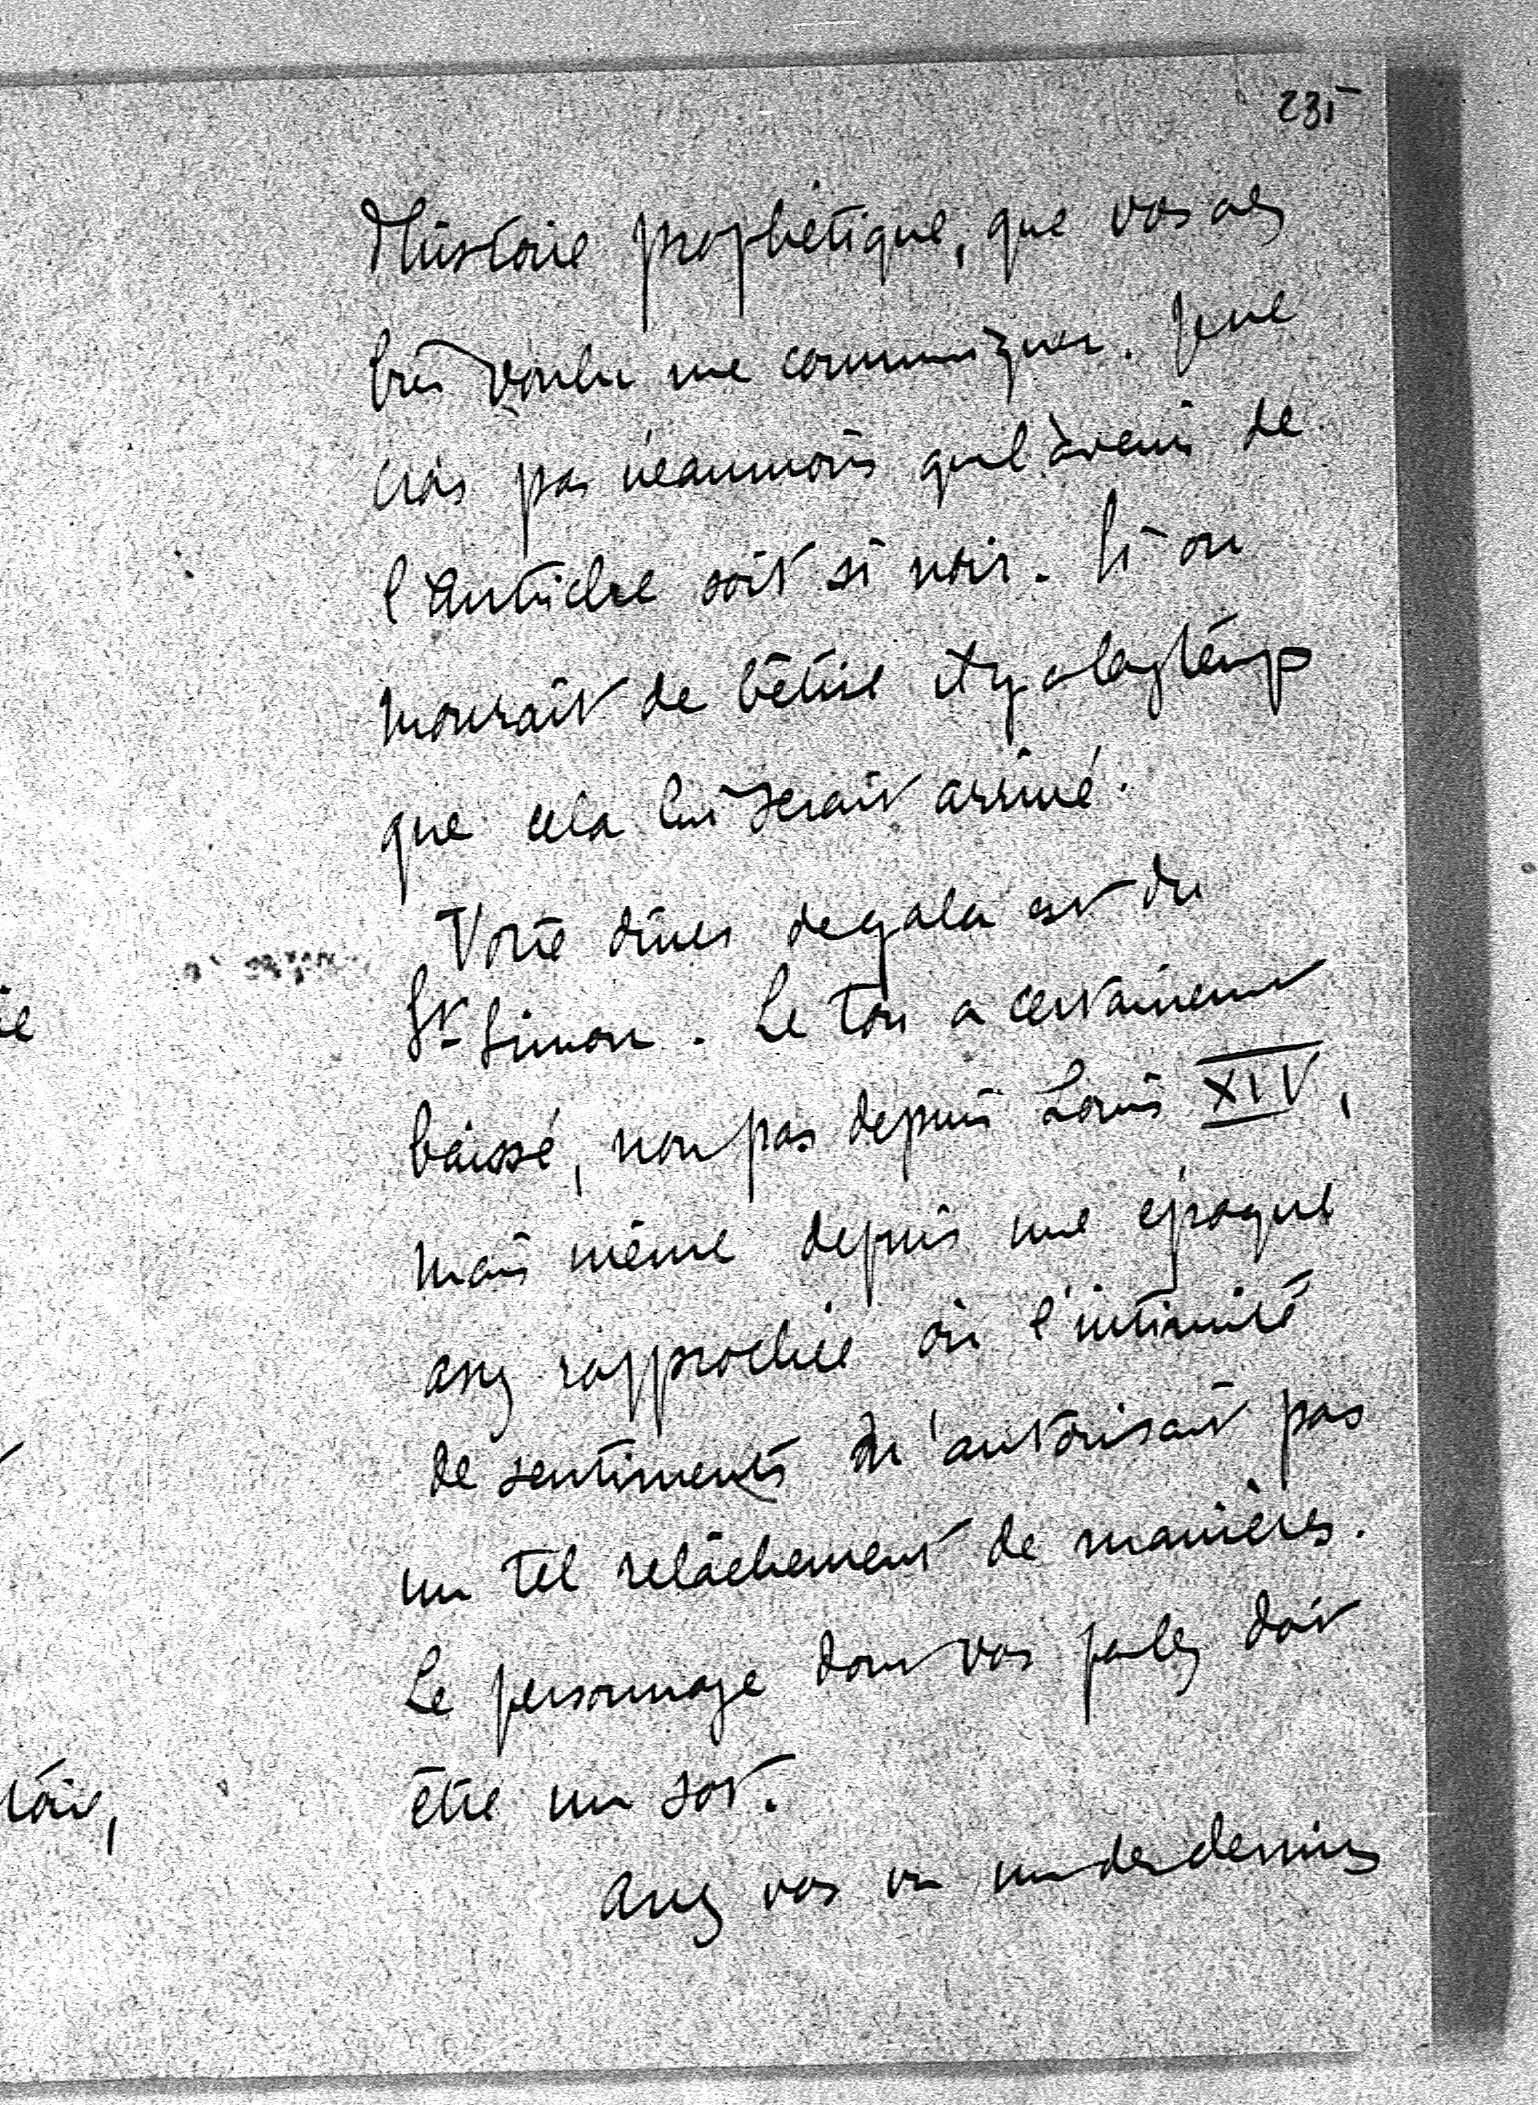 235
l'histoire prophétique, que vous avez
bien voulu me communiquer. Je ne
crois pas néanmoins que l'avenir de
l'Autriche soit si noir. Si on
mourait de bêtise il y a longtemps
que cela lui serait arrivé.
Votre dîner de gala est du
St Simon. Le ton a certainement
baissé, non pas depuis Louis XIV,
mais même depuis une époque
assez rapprochée où l'intimité
de sentiments n'autorisait pas
un tel relâchement de manières.
Le personnage dont vous parlez doit
être un sot.
Avez vous vu un des derniers